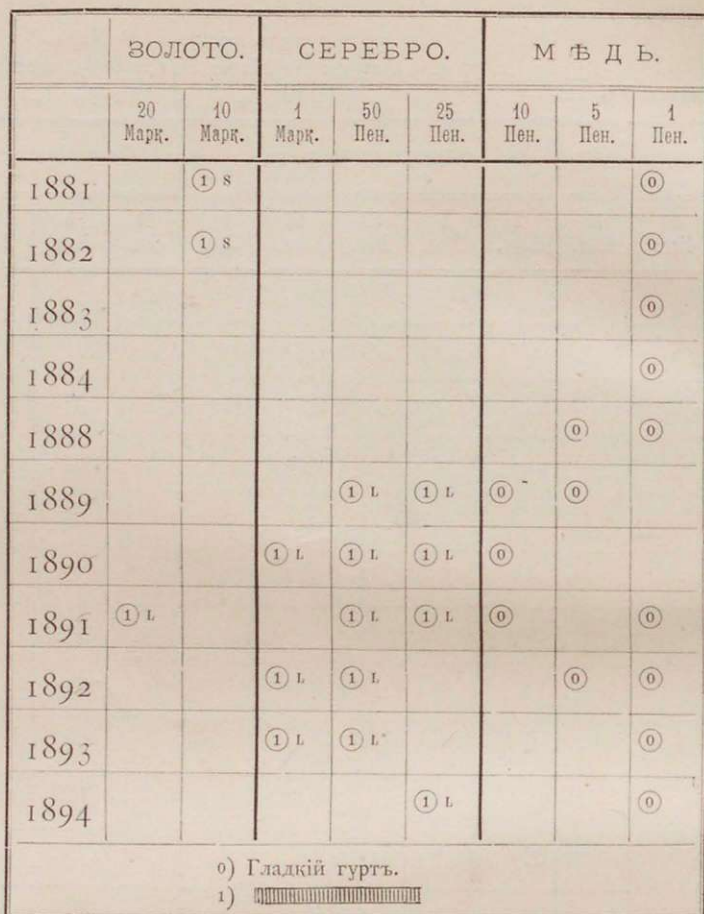 ЗОЛОТО. СЕРЕБРО. МѢДЬ.
20 Марк. 10 Марк. 1 Марк. 50 Пен. 25 Пен. 10 Пен. 5 Пен. 1 Пен.
1881 ① S ⓪
1882 ① S ⓪
1883 ⓪
1884 ⓪
1888 ⓪ ⓪
1889 ① L ① L ⓪ ⓪
1890 ① L ① L ① L ⓪
1891 ① L ① L ① L ⓪ ⓪
1892 ① L ① L ⓪ ⓪
1893 ① L ① L ⓪
1894 ① L ⓪
0) Гладкій гуртъ.
1)